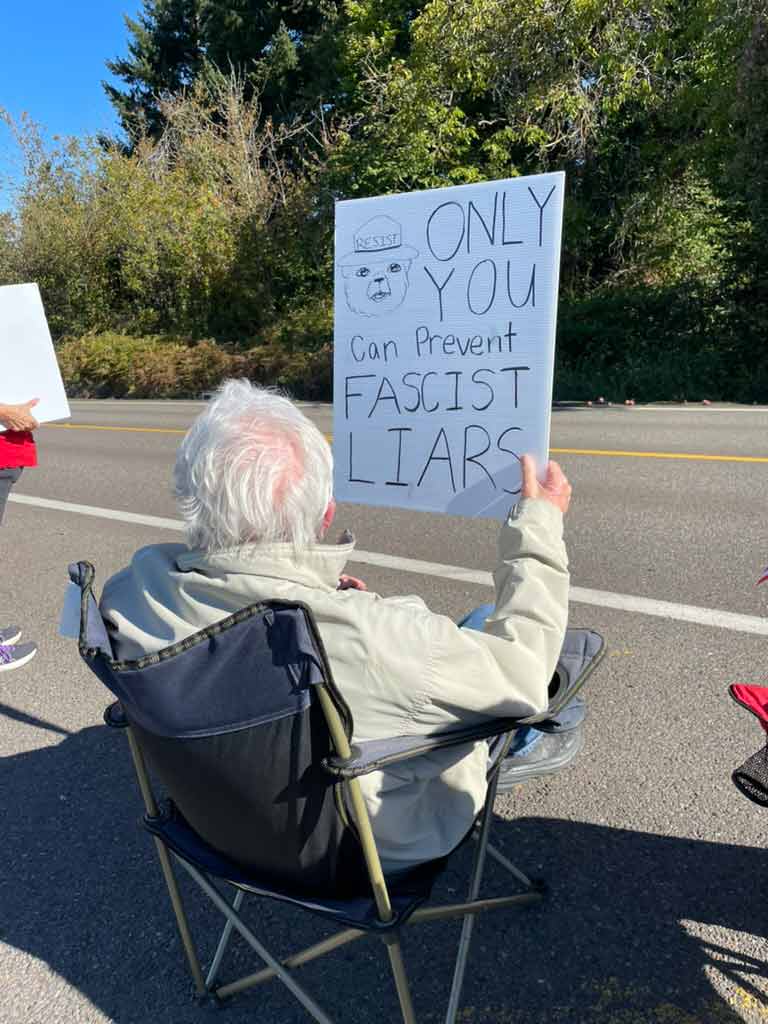 RESIST
ONLY
YOU
Can Prevent
FASCIST
LIARS